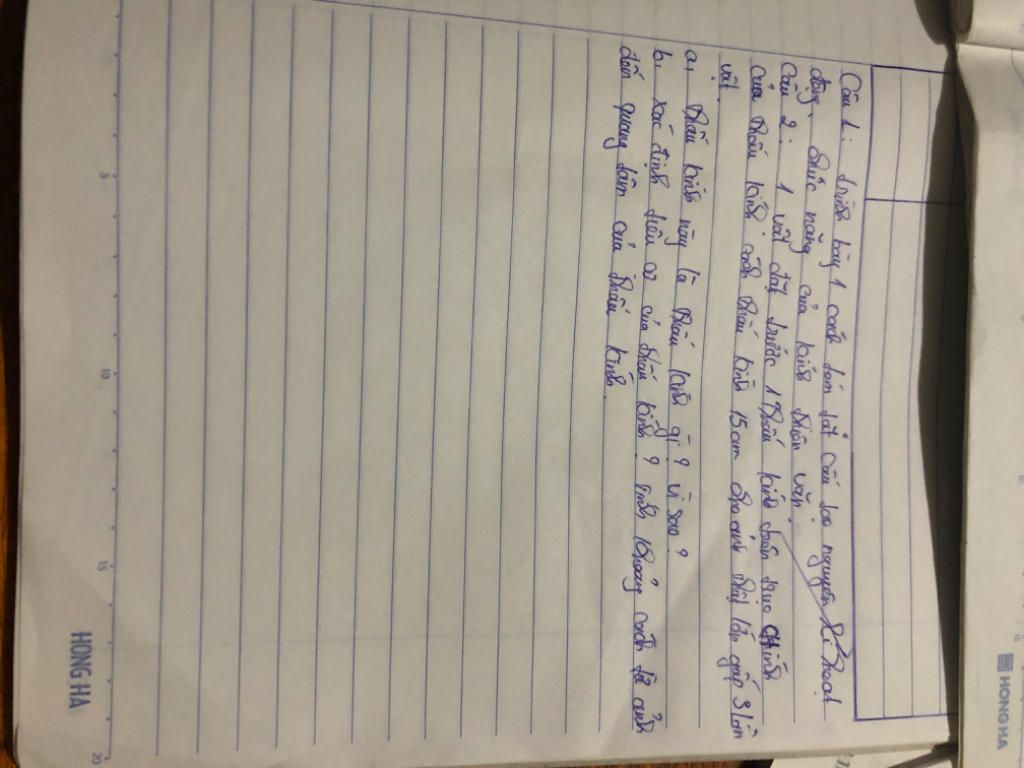 Câu 1: trình bày 1 cách tóm tắt cấu tạo nguyên lí hoạt
động, chức năng của kính thiên văn.
Câu 2: 1 vật đặt trước 1 thấu kính trên trục chính
của thấu kính cách thấu kính 15cm cho ảnh thật lớn gấp 3 lần
vật.
a, thấu kính này là thấu kính gì? vì sao?
b, xác định tiêu cự của thấu kính? tính khoảng cách từ ảnh
đến quang tâm của thấu kính.
5
10
15
20
HONG HA
HONG HA